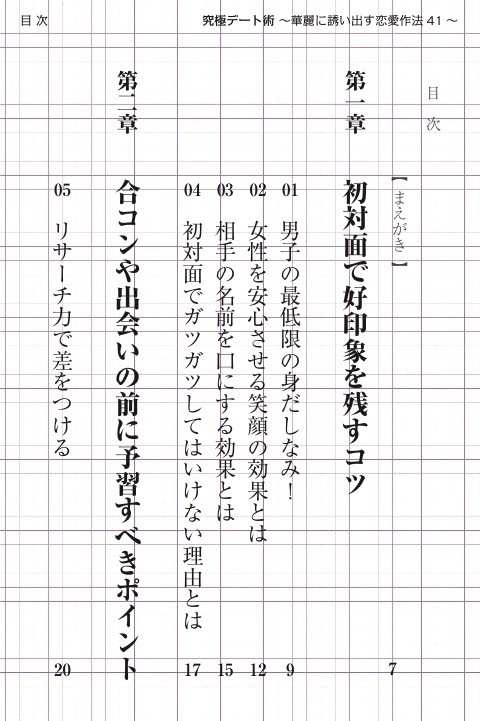 目 次
究極デート術 〜華麗に誘い出す恋愛作法 41〜
目 次
【まえがき】 7
第一章 初対面で好印象を残すコツ
01 男子の最低限の身だしなみ！ 9
02 女性を安心させる笑顔の効果とは 12
03 相手の名前を口にする効果とは 15
04 初対面でガツガツしてはいけない理由とは 17
第二章 合コンや出会いの前に予習すべきポイント
05 リサーチ力で差をつける 20